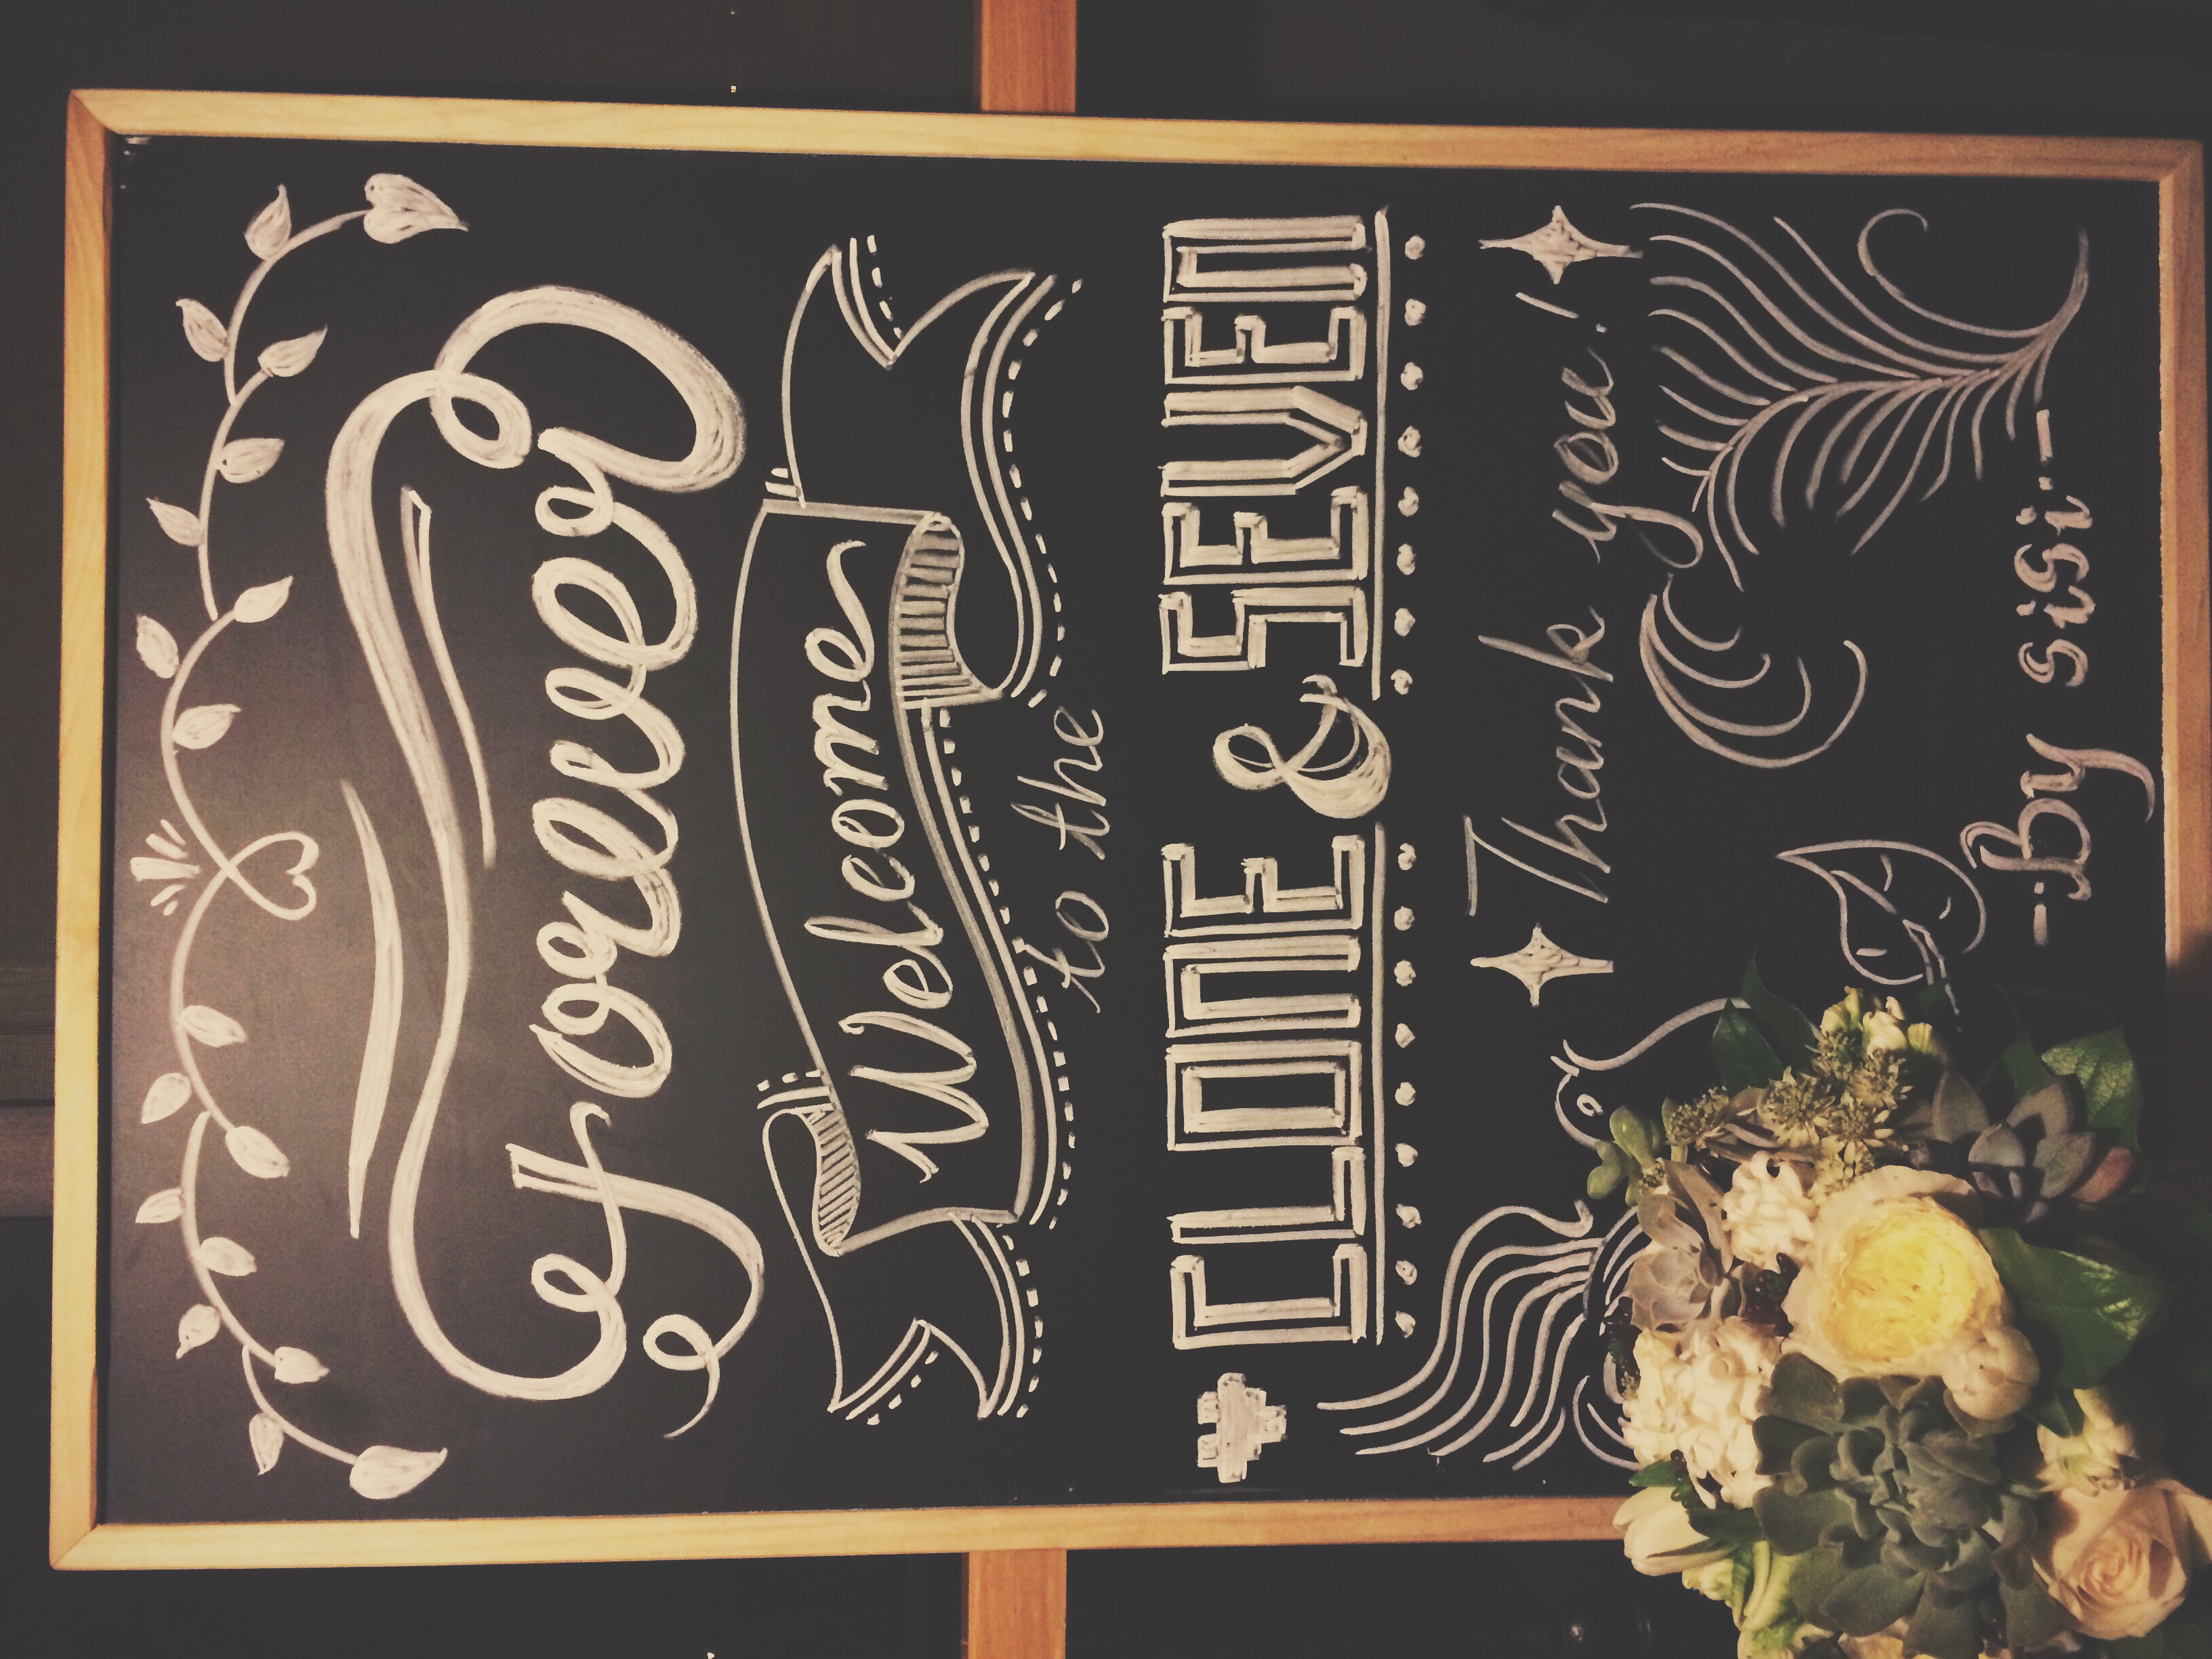 Forever
Welcome
to the
CLONE & SEVEN
Thank you!
-·By sisi·-